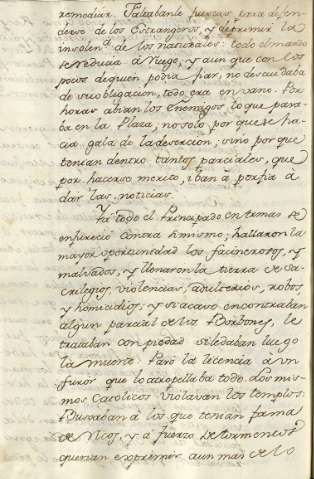 remediar. Faltabanle fuerzas para defen
derse de los Estrangeros, y reprimir la
insolenª de los naturales: todo el mando
se reducia à ruego, y aun que con los
pocos de quien podia fiar, no descuidaba
de su obligacion, todo era en vano. Por
horas sabian los enemigos lo que pasa
ba en la Plaza, no solo por que se ha
cia gala de la deserción; sino por que
tenian dentro tantos parciales, que
por hacerse merito, iban à porfia à
dar las noticias.
Ya todo el Principado en armas se
enfureciò contra si mismo; hallaron la
mayor oportunidad los facinerosos, y
malvados, y llenaron la tierra de sa
crilegios, violencias, adulterios, robos
y homicidios, y si acaso encontraban
algun parcial de los Borbones, le
trataban con piedad si le daban luego
la muerte. Pasò la licencia à un
furor que lo atropellaba todo. Los mis
mos Catolicos violavan los templos.
Buscaban à los que tenian fama
de ricos, y à fuerza de tormentos
querian exprimir aun mas de lo